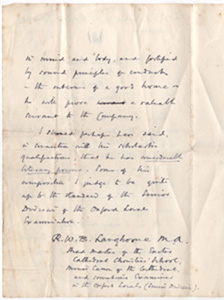 in mind and body, and fortified
by sound principles of conduct —
the outcome of a good home —
he will prove a valuable
servant to the Company.
I should perhaps have said,
in connection with his scholastic
qualifications, that he has
literary powers. Some of his
composition I judge to be quite
up to the standard of the Senior
Division of the Oxford Local
Examination.
R. W. B. Langhorne M.A.
Head Master of the
Cathedral Choristers' School,
Minor Canon of the Cathedral,
and sometime Examiner
in the Oxford Locals (Senior Division).